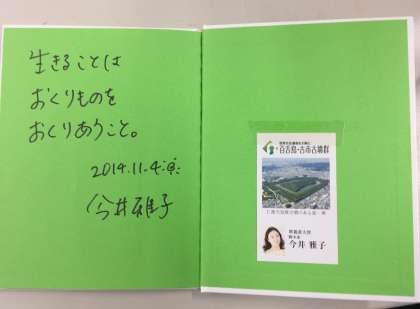 生きることは
おくりものを
おくりあうこと。
2014.11.4
今井雅子
百舌鳥・古市古墳群
今井 雅子